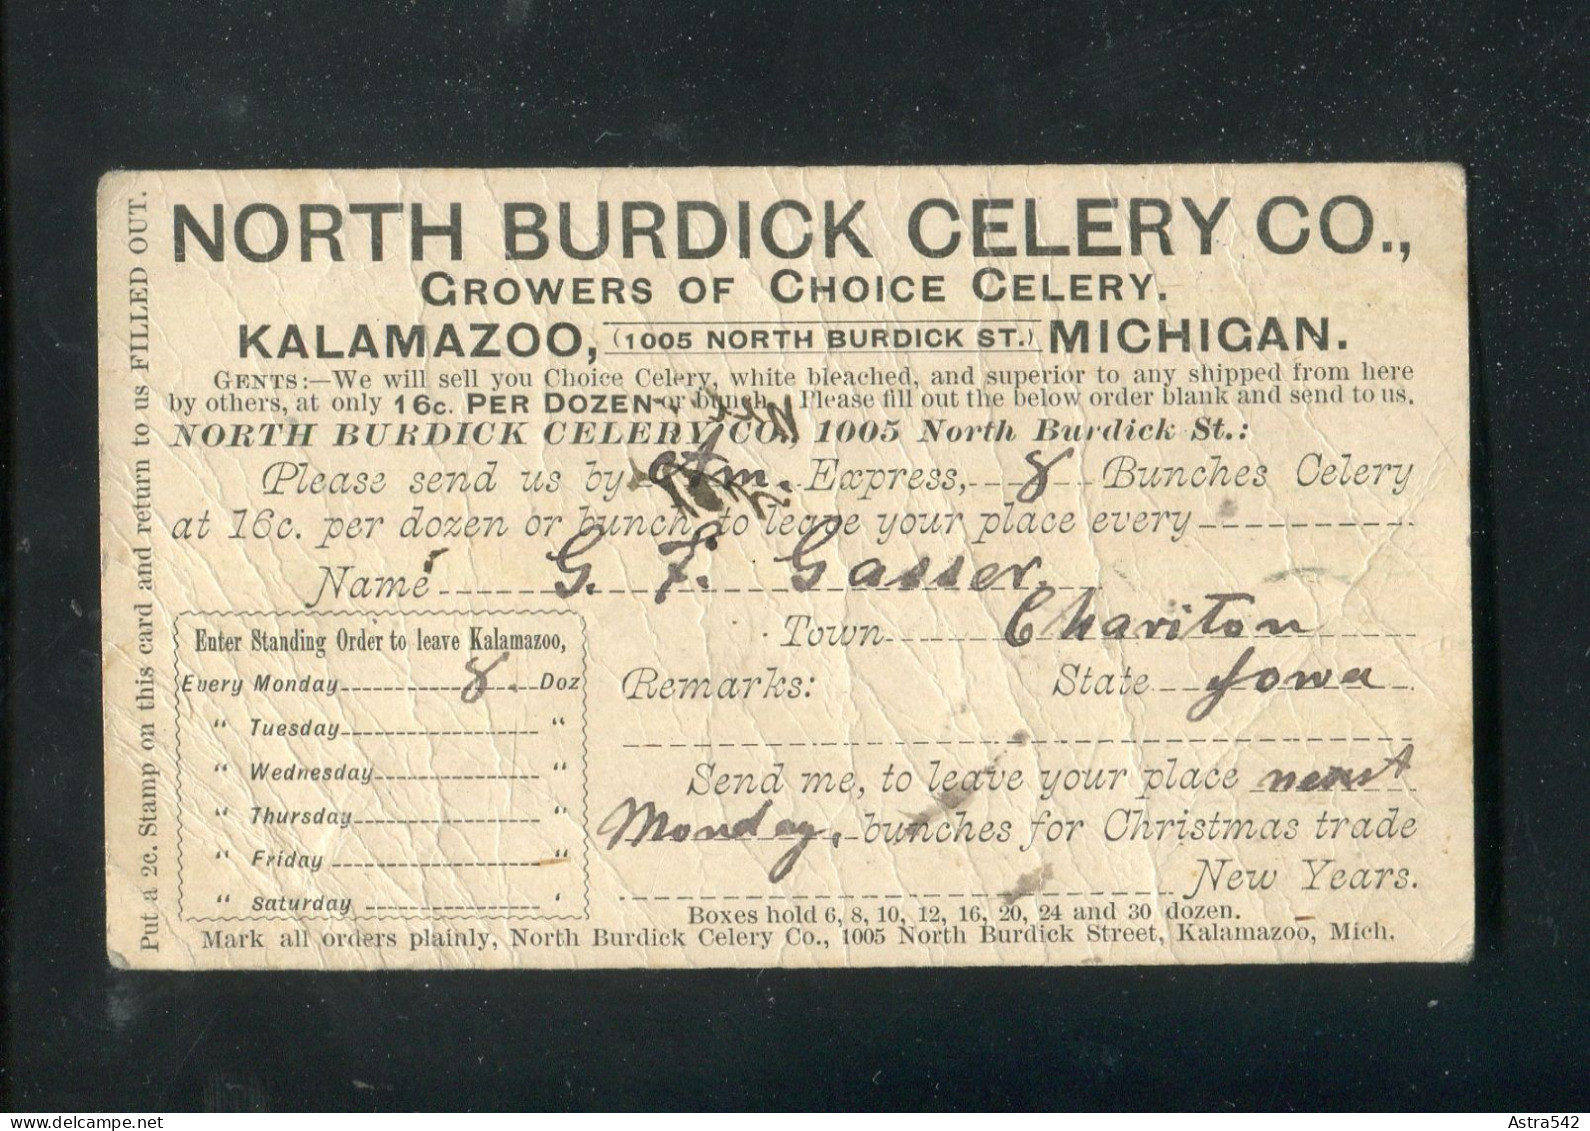 NORTH BURDICK CELERY CO.,
GROWERS OF CHOICE CELERY.
KALAMAZOO, (1005 NORTH BURDICK ST.) MICHIGAN.
GENTS:—We will sell you Choice Celery, white bleached, and superior to any shipped from here
by others, at only 16c. PER DOZEN or bunch. Please fill out the below order blank and send to us.
NORTH BURDICK CELERY CO., 1005 North Burdick St.:
Please send us by Am. Express, 8 Bunches Celery
at 16c. per dozen or bunch, to leave your place every
Name G. F. Gasser.
Town Chariton
State Iowa
Remarks:
Enter Standing Order to leave Kalamazoo,
Every Monday 8 Doz
" Tuesday "
" Wednesday "
" Thursday "
" Friday "
" Saturday '
Send me, to leave your place next
Monday, bunches for Christmas trade
New Years.
Boxes hold 6, 8, 10, 12, 16, 20, 24 and 30 dozen.
Mark all orders plainly, North Burdick Celery Co., 1005 North Burdick Street, Kalamazoo, Mich.
Put a 2c. Stamp on this card and return to us FILLED OUT.
Astra542